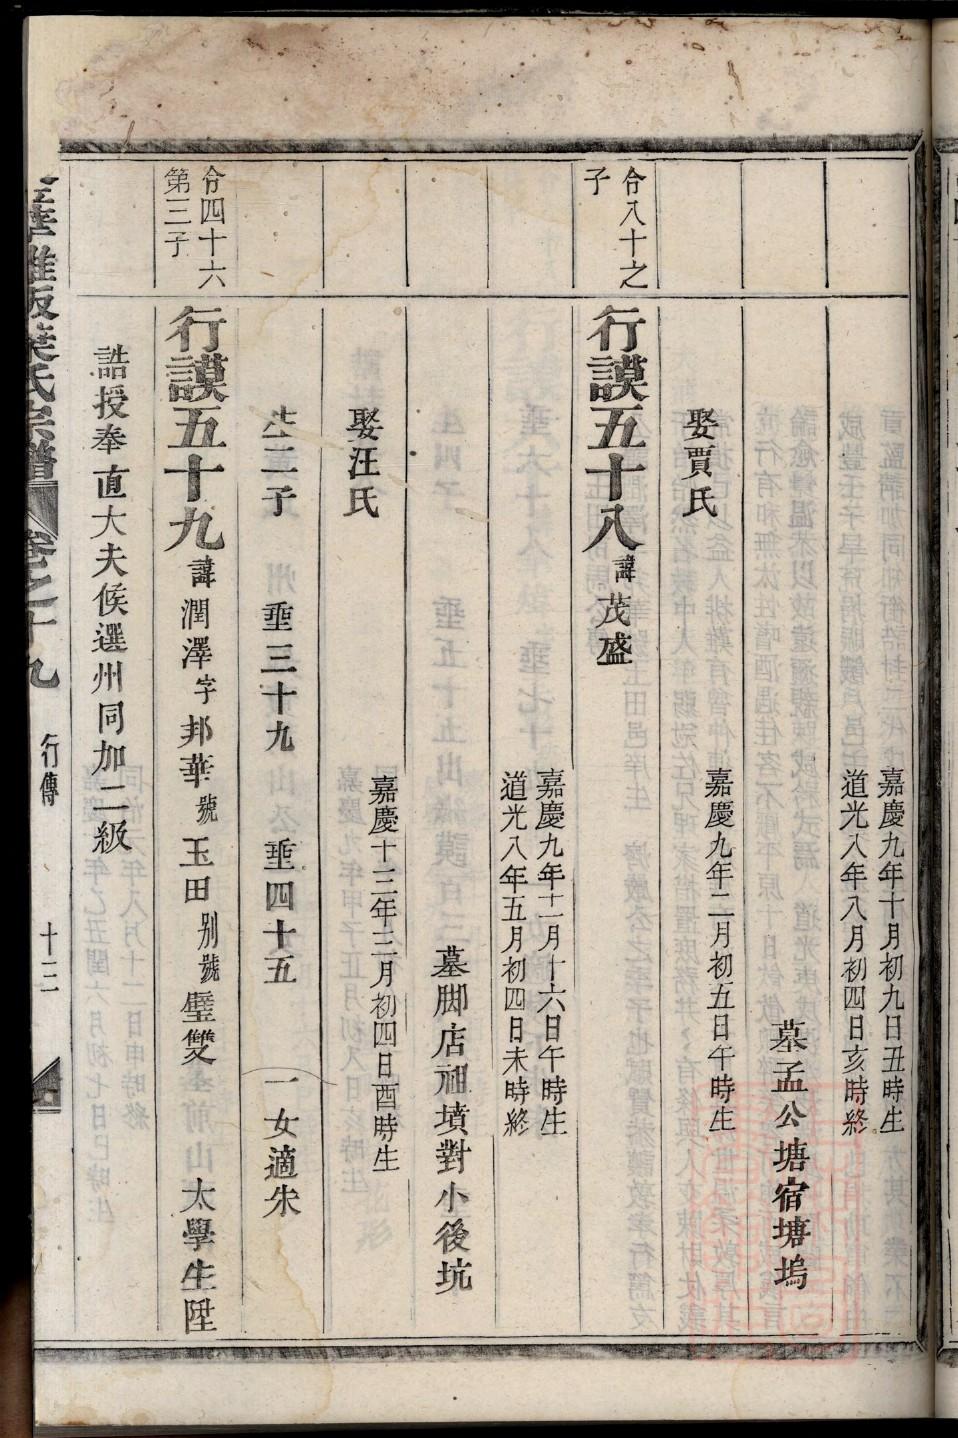 嘉慶九年十月初九日丑時生
道光八年八月初四日亥時終
墓孟公塘宿塘塢
嘉慶九年二月初五日午時生
娶賈氏
令八十之
子
行謨五十八諱茂盛
嘉慶九年十一月十六日午時生
道光八年五月初四日未時終
墓脚店祖墳對小後坑
嘉慶十二年三月初四日酉時生
娶汪氏
生二子 垂三十九 垂四十五 一女適朱
令四十六
第三子
行謨五十九諱潤澤字邦華號玉田別號璧雙 太學生陞
誥授奉直大夫候選州同加二級
氏宗譜 卷之十九 行傳 十二